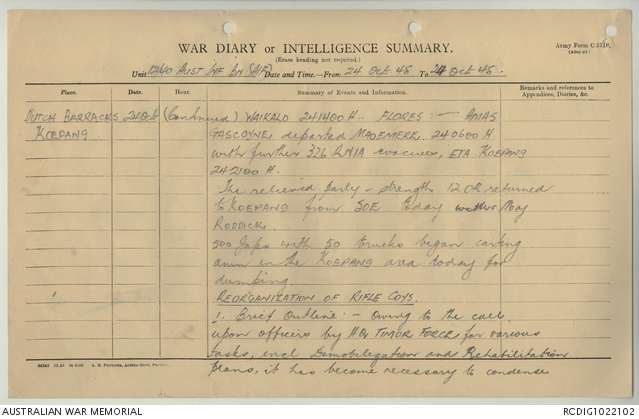 Army Form C.2118.
WAR DIARY or INTELLIGENCE SUMMARY.
(Erase heading not required.)
Unit 12/40 Aust Inf Bn (AIF) Date and Time—From 24 Oct 45 To 24 Oct 45.
Place. Date. Hour. Summary of Events and Information. Remarks and references to Appendices, Diaries, &c.
DUTCH BARRACKS 24 Oct (Continued) WAIKALO 241400 H. FLORES:— HMAS
KOEPANG GASCOYNE departed MAOEMERE 240600 H
with further 326 RNIA evacuees, ETA KOEPANG
242100 H.
The relieved party - strength 12 OR returned
to KOEPANG from SOE today with Maj
RODDICK.
500 Japs with 50 trucks began carting
amm in the KOEPANG area today for
dumping.
REORGANIZATION OF RIFLE COYS.
1. Brief Outline:— Owing to the call
upon officers by HQ TIMOR FORCE for various
tasks, incl Demobilization and Rehabilitation
plans, it has become necessary to condense
AUSTRALIAN WAR MEMORIAL
RCDIG1022102